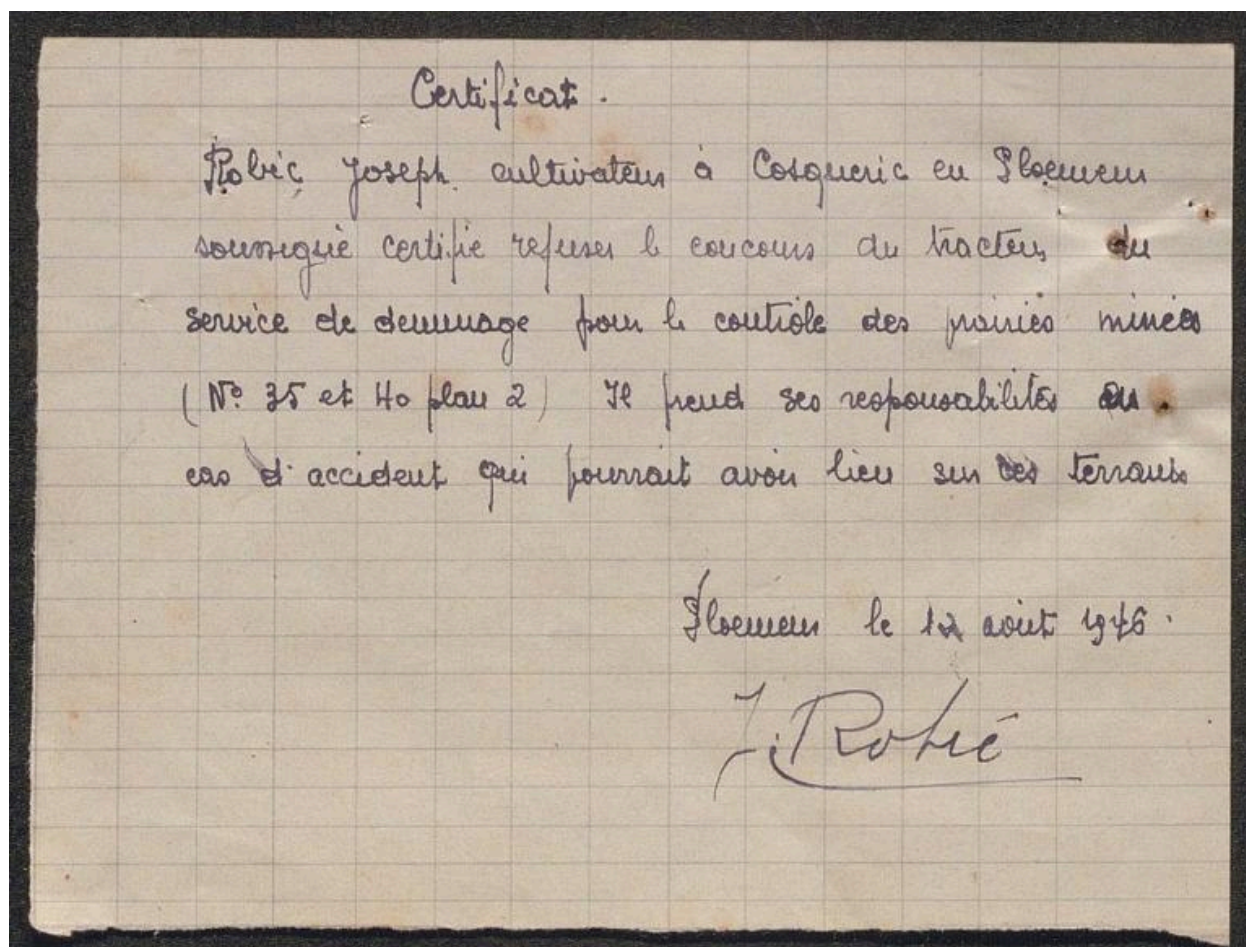 Certificat.
Robic Joseph cultivateur à Cosqueric en Ploemeur
soussigné certifie refuser le concours du tracteur du
service de deminage pour le contrôle des prairies minées
(N° 35 et 40 plan 2) Il prend ses responsabilités au
cas d'accident qui pourrait avoir lieu sur ces terrants
Ploemeur le 12 août 1946.
J. Robic